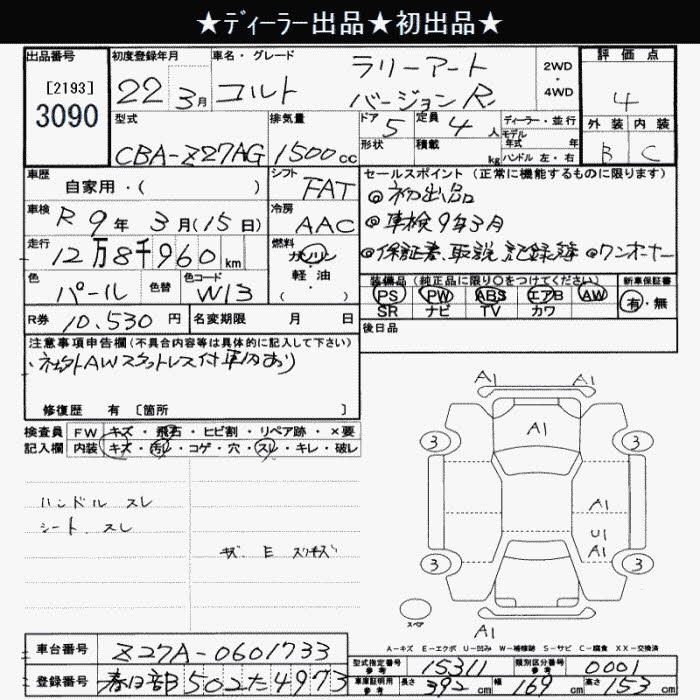 ★ディーラー出品★初出品★
出品番号 初度登録年月 車名・グレード 評価点
[2193]
3090
22年 3月 コルト ラリーアート バージョンR 2WD・4WD 4
型式 排気量 ドア 5 定員 4人 ディーラー・並行 外装 内装
CBA-Z27AG 1500cc 形状 積載 kg モデル年式 年 ハンドル 左・右 B C
車歴 自家用・( ) シフト FAT セールスポイント (正常に機能するものに限ります)
車検 R9年 3月(15日) 冷房 AAC ◎初出品
◎車検9年3月
走行 12万8千960km 燃料 ガソリン・軽油・( ) ◎保証書、取説、記録簿 ◎ワンオーナー
色 パール 色替 色コード W13 装備品 (純正品に限り○をつけてください) 新車保証書
PS PW ABS エアB AW 有・無
SR ナビ TV カワ
R券 10,530円 名変期限 月 日 後日品
注意事項申告欄(不具合内容等は具体的に記入して下さい)
・社外AWスタットレス付 車内あり
修復歴 有 [箇所 ]
検査員 FW キズ・飛石・ヒビ割・リペア跡・×要
記入欄 内装 キズ・汚レ・コゲ・穴・スレ・キレ・破レ
ハンドル スレ
シート、スレ
キズ、E スリキズ
A1 A1
A1
3 3
A1
U1
A1
3 3
スペア
A1
A-キズ E-エクボ U-凹み W-補修跡 S-サビ C-腐食 XX-交換済
車台番号 Z27A-0601733
登録番号 春日部502た4973
型式指定番号 参考 15311 類別区分番号 参考 0001
車庫証明用 参考 長さ 392cm 幅 169cm 高さ 153cm